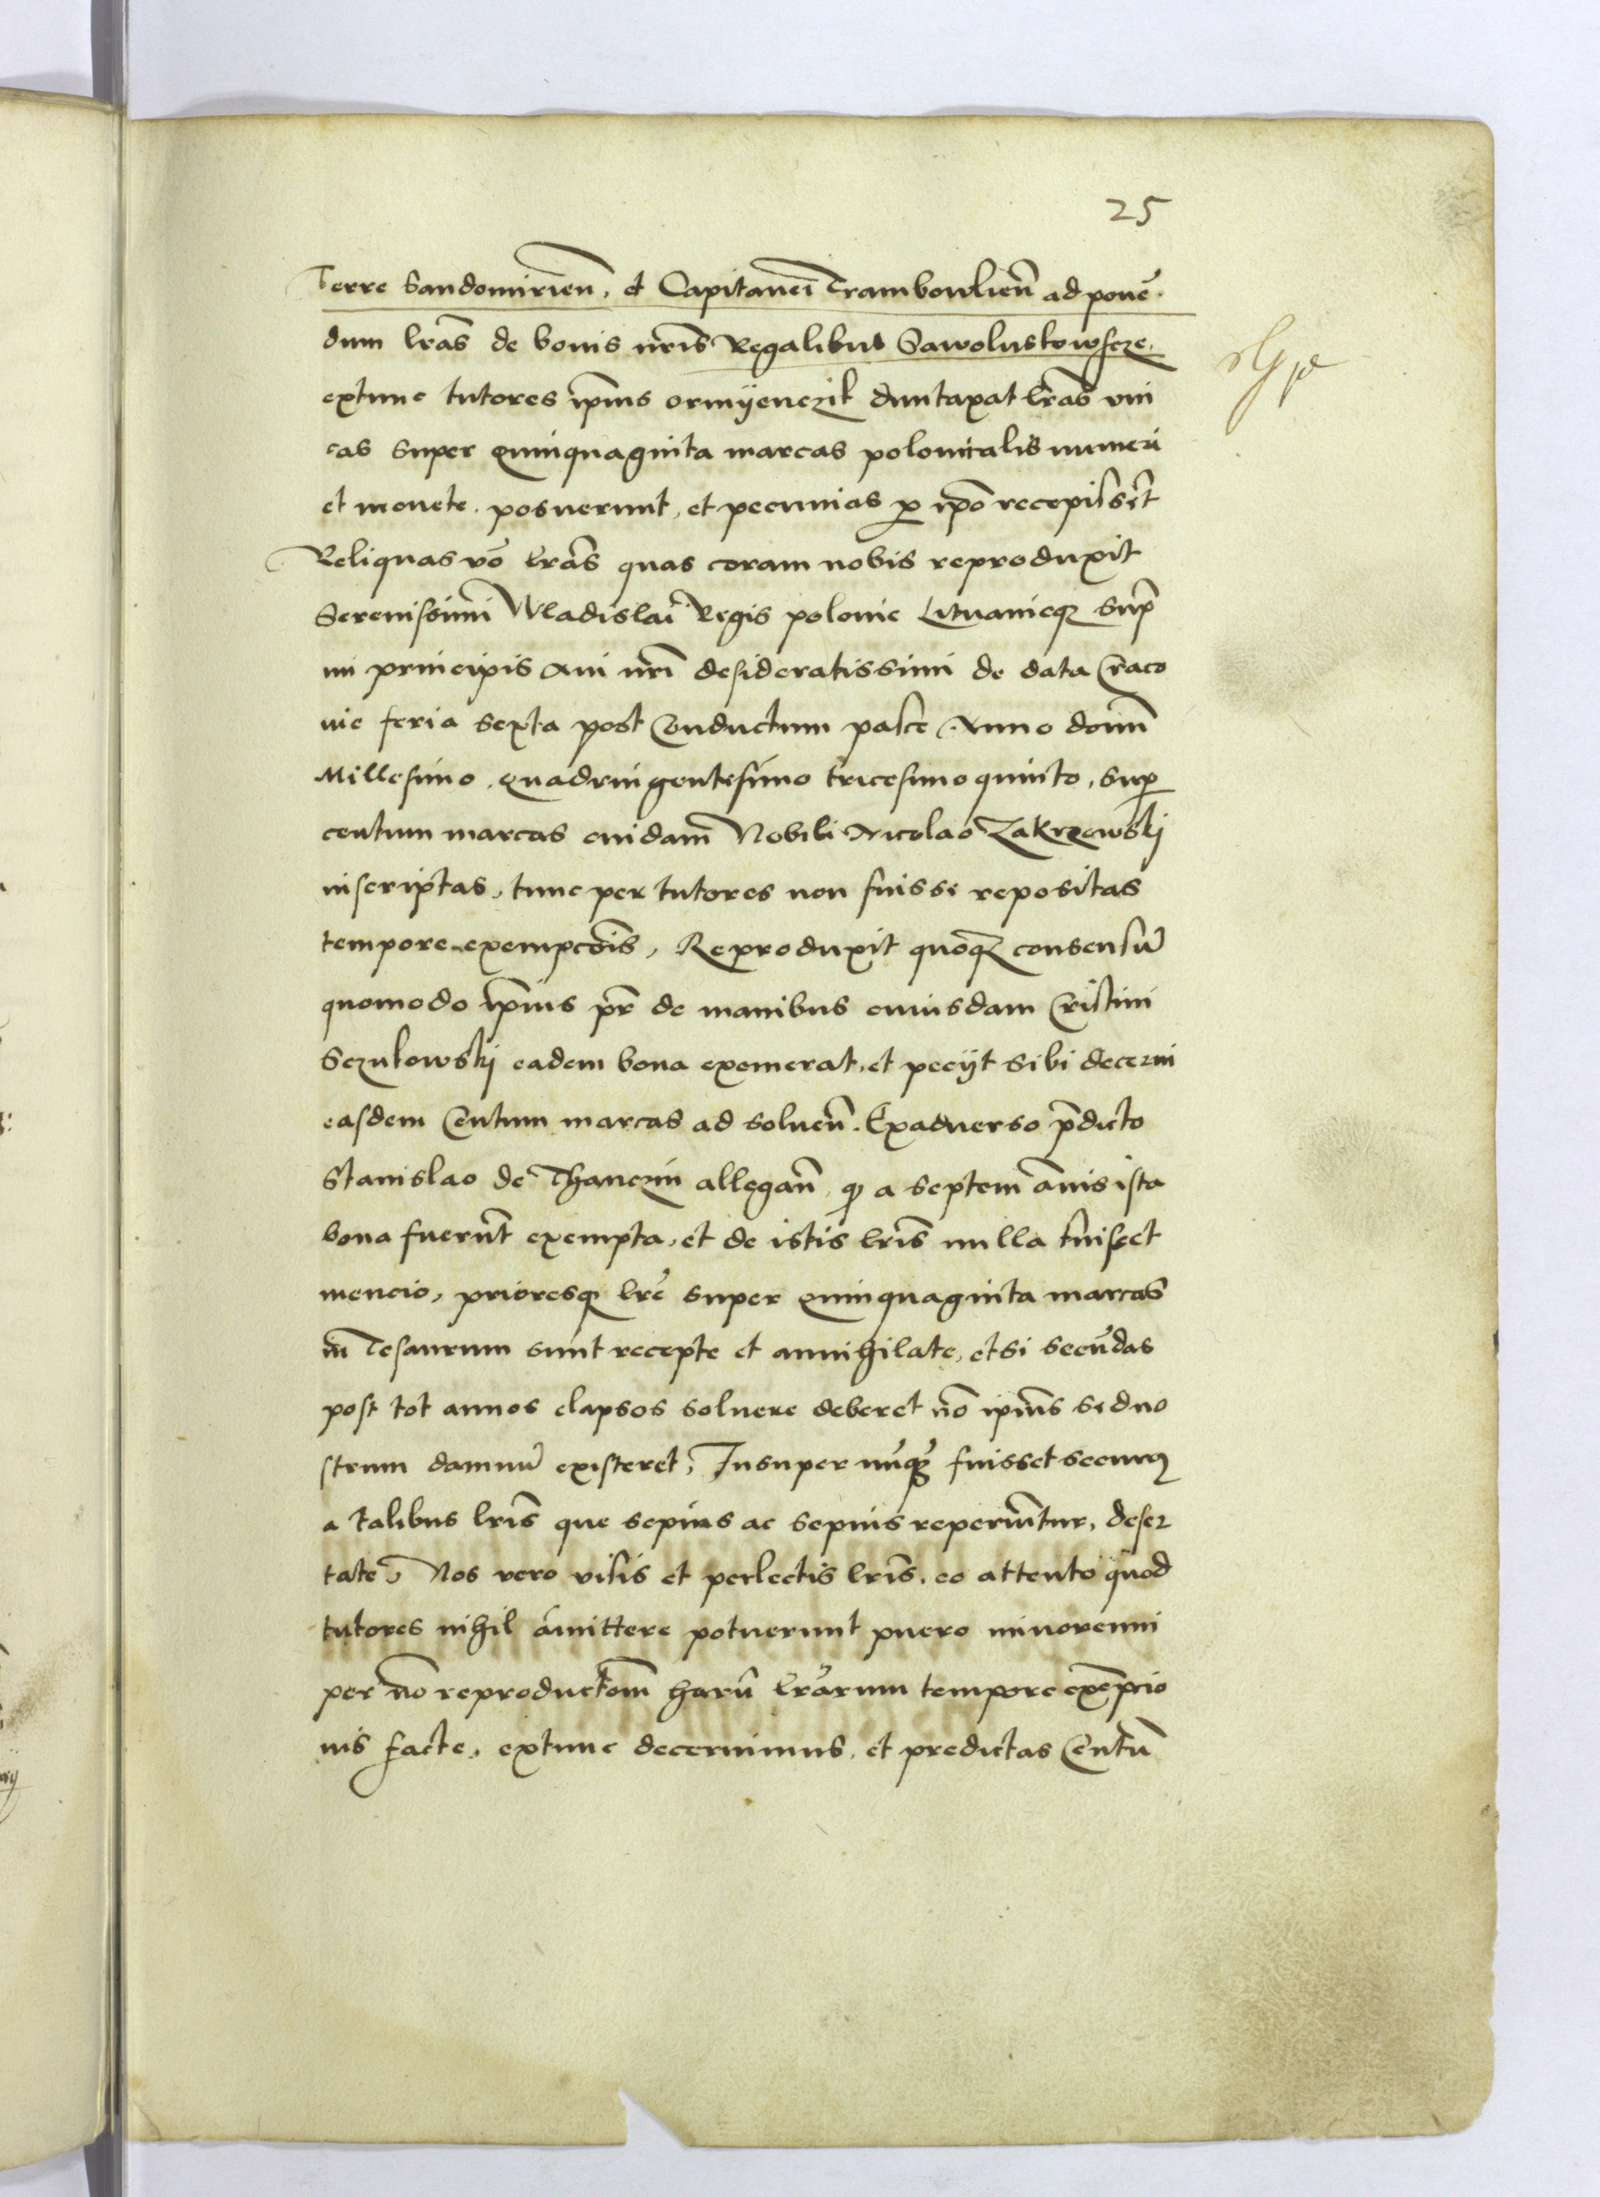 25
Terre Sandomirien̄, et Capitanei Trambowlien̄ ad ponē
dum lr̄as de bonis nr̄is Regalibus Sawoluskowscze,
extunc tutores ip̄ius ormyenczik duntaxat lr̄as vni
cas super quinquaginta marcas polonicalis numeri
et monete posuerunt, et pecunias p ip̄o recepissēt
Reliquas v̄o lr̄as quas coram nobis reproduxit
Serenissimi Wladislai Regis polonie Lituanieqꝫ Sup̄
mi principis Aui nr̄i desideratissimi de data Craco
uie feria sexta post Conductum pasce Anno domī
Millesimo quadringentesimo tricesimo quinto, sup
centum marcas cuidam Nobili Nicolao Zakrzewskj
inscriptas, tunc per tutores non fuisse repositas
tempore exempcōis, Reproduxit quoqꝫ consensū
quomodo ip̄ius pr̄ de manibus cuiusdam Cristini
Sczukowskj eadem bona exemerat, et peciit sibi decerni
easdem Centum marcas ad soluen̄. Exaduerso p̄dicto
Stanislao de Thanczin allegan̄ qꝫ a septem ānis ista
bona fuerūt exempta, et de istis lr̄is nulla fuisset
mencio, prioresqꝫ lr̄e super quinquaginta marcas
in̄ Tesaurum sunt recepte et annihilate, etsi secūdas
post tot annos elapsos soluere deberet nō ip̄ius sed no
strum damnū existeret, Insuper nūqꝫ fuisset securꝰ
a talibus lr̄is que sepius ac sepius reperiūtur, deser
tate, Nos vero visis et perlectis lr̄is, eo attento quod
tutores nihil amittere potuerunt puero minorenni
per nō reproductōm harū lr̄arum tempore exēpcio
nis facte, extunc decernimus, et predictas Centū